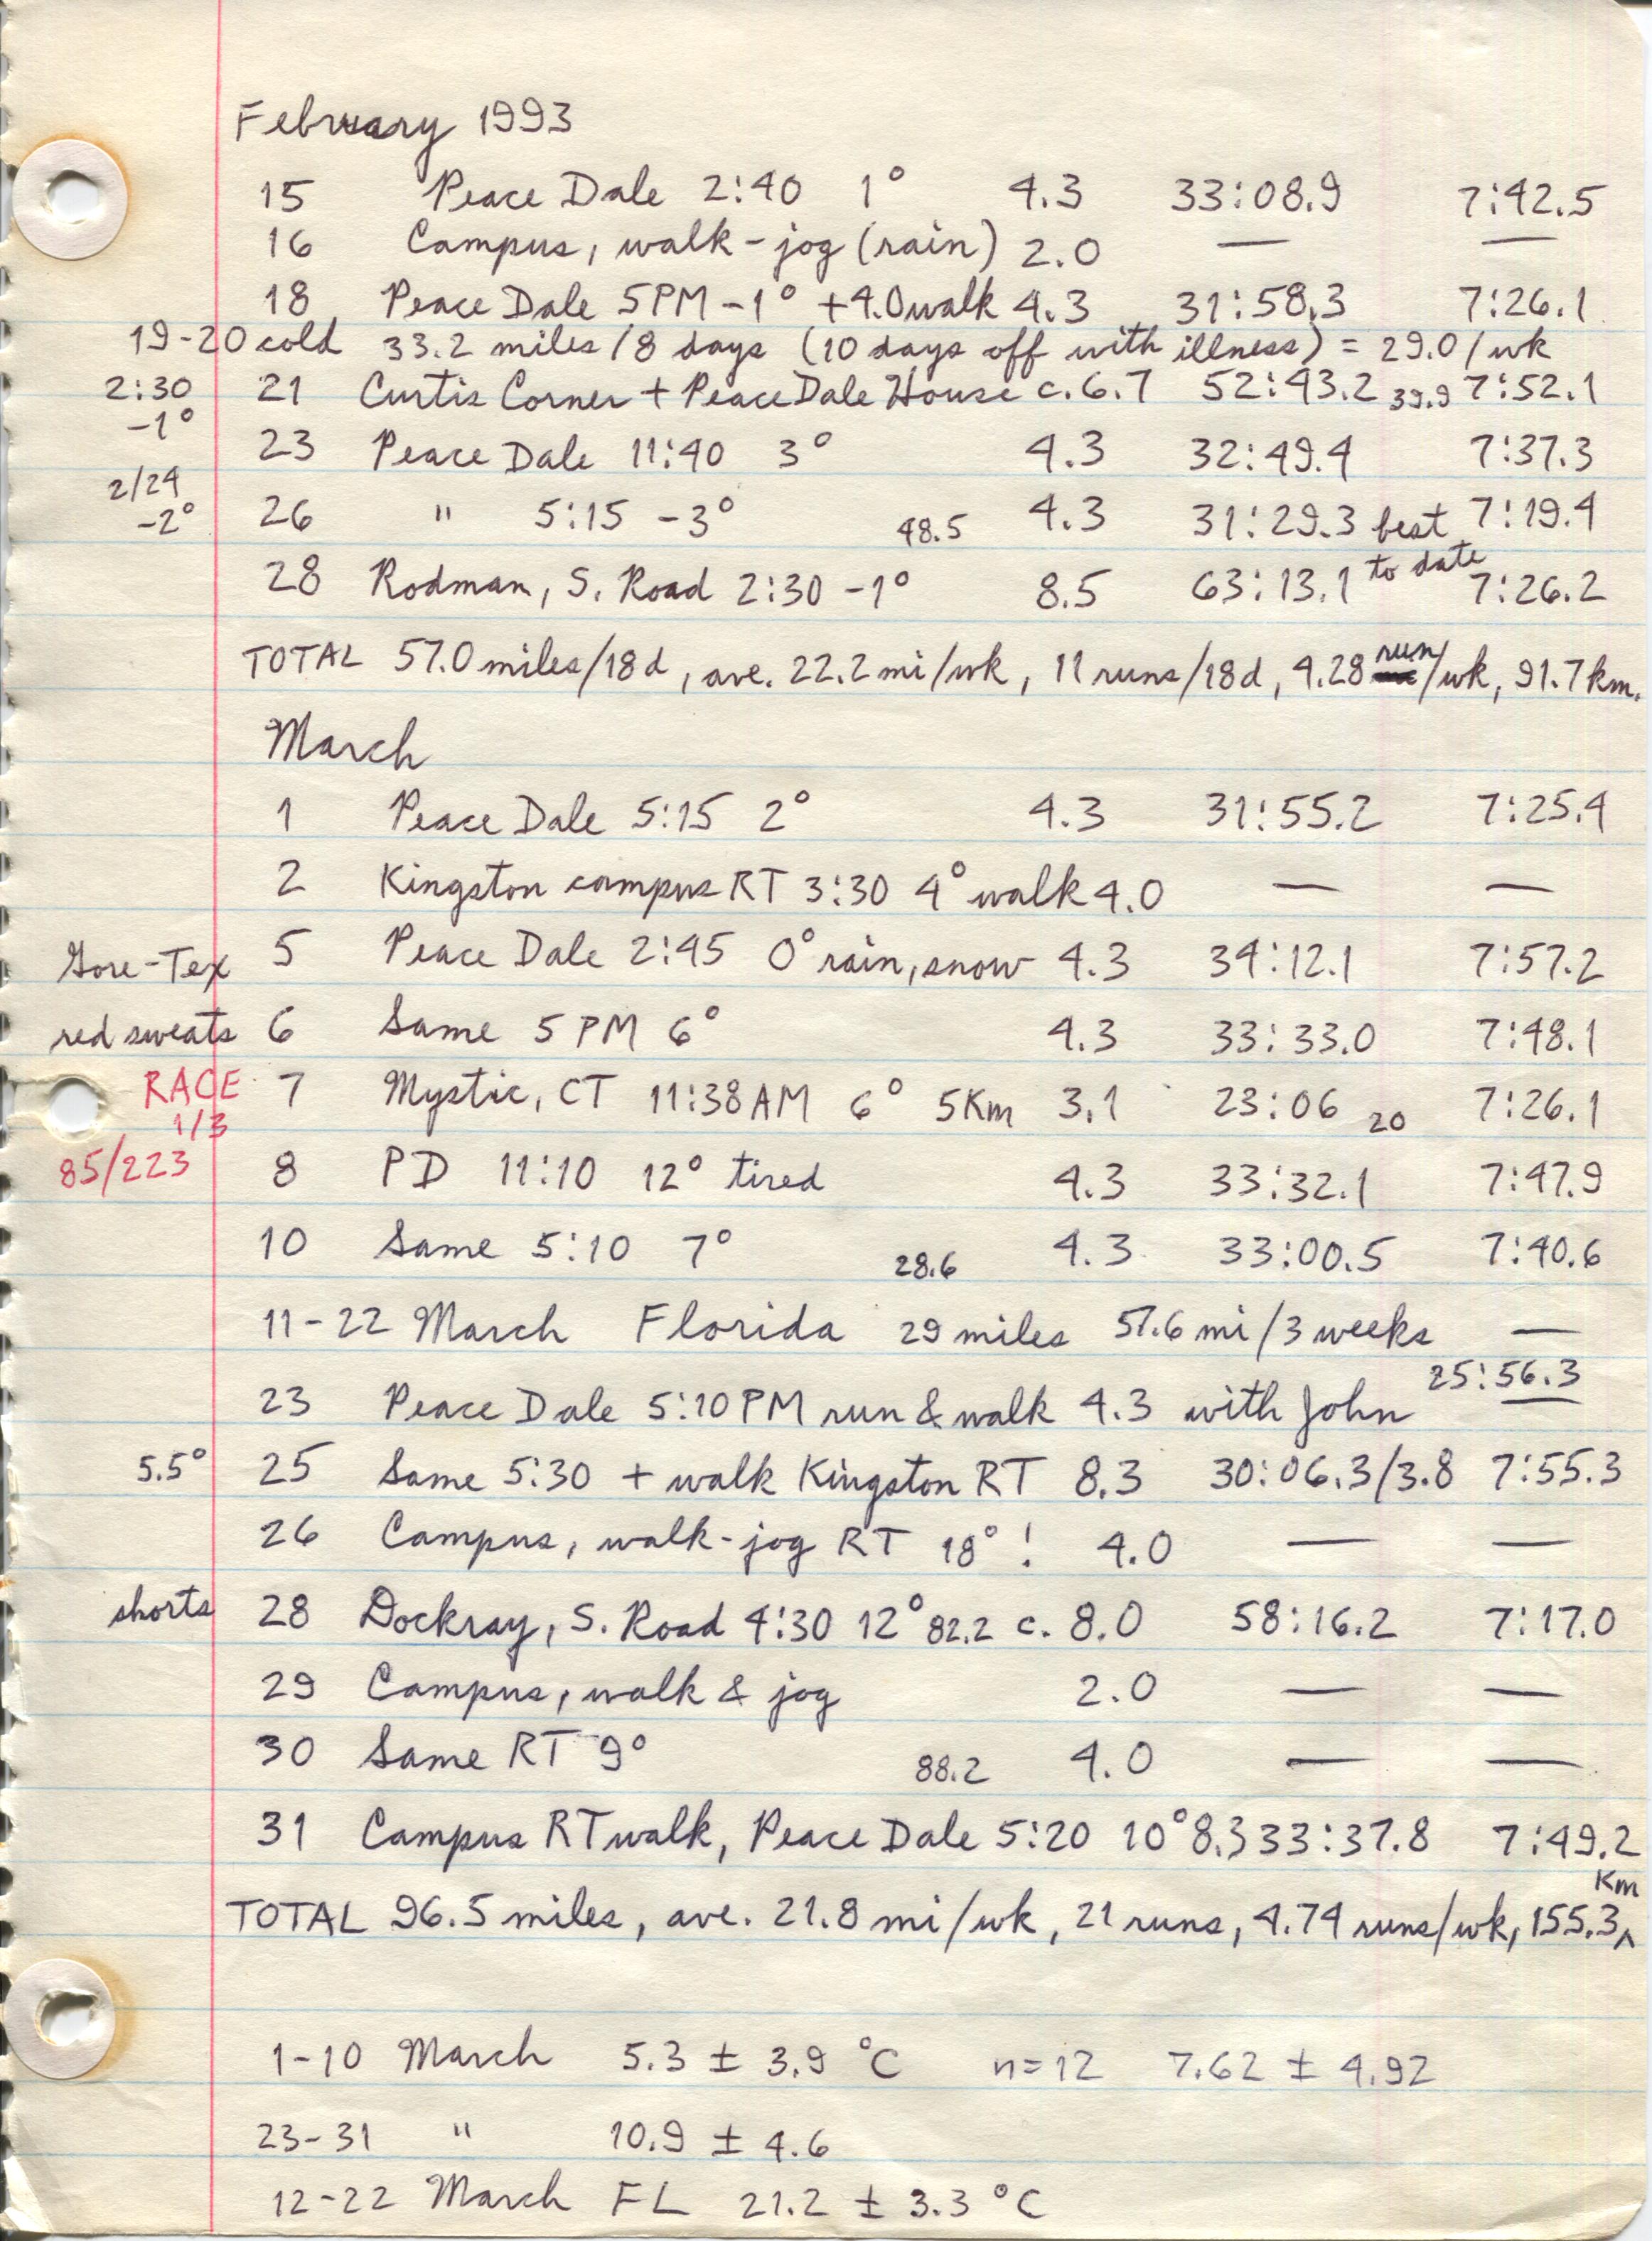 February 1993
15 Peace Dale 2:40 1° 4.3 33:08.9 7:42.5
16 Campus, walk-jog (rain) 2.0 — —
18 Peace Dale 5PM -1° +4.0 walk 4.3 31:58.3 7:26.1
19-20 cold 33.2 miles/8 days (10 days off with illness) = 29.0/wk
2:30 -1° 21 Curtis Corner + Peace Dale House c. 6.7 52:43.2 39.9 7:52.1
23 Peace Dale 11:40 3° 4.3 32:49.4 7:37.3
2/24 -2° 26 " 5:15 -3° 48.5 4.3 31:29.3 best to date 7:19.4
28 Rodman, S. Road 2:30 -1° 8.5 63:13.1 7:26.2
TOTAL 57.0 miles/18d, ave. 22.2 mi/wk, 11 runs/18d, 4.28 run/wk, 91.7 km.
March
1 Peace Dale 5:15 2° 4.3 31:55.2 7:25.4
2 Kingston campus RT 3:30 4° walk 4.0 — —
Gore-Tex 5 Peace Dale 2:45 0° rain, snow 4.3 34:12.1 7:57.2
red sweats 6 Same 5 PM 6° 4.3 33:33.0 7:48.1
RACE 1/3 7 Mystic, CT 11:38 AM 6° 5Km 3.1 23:06 20 7:26.1
85/223 8 PD 11:10 12° tired 4.3 33:32.1 7:47.9
10 Same 5:10 7° 28.6 4.3 33:00.5 7:40.6
11-22 March Florida 29 miles 57.6 mi/3 weeks —
23 Peace Dale 5:10 PM run & walk 4.3 with John 25:56.3
5.5° 25 Same 5:30 + walk Kingston RT 8.3 30:06.3/3.8 7:55.3
26 Campus, walk-jog RT 18°! 4.0 — —
shorts 28 Dockray, S. Road 4:30 12° 82.2 c. 8.0 58:16.2 7:17.0
29 Campus, walk & jog 2.0 — —
30 Same RT 9° 88.2 4.0 — —
31 Campus RT walk, Peace Dale 5:20 10° 8.3 33:37.8 7:49.2
TOTAL 96.5 miles, ave. 21.8 mi/wk, 21 runs, 4.74 runs/wk, 155.3 Km
1-10 March 5.3 ± 3.9 °C n=12 7.62 ± 4.92
23-31 " 10.9 ± 4.6
12-22 March FL 21.2 ± 3.3 °C